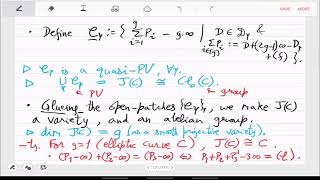 • Define C_γ := { Σ_{i=1}^{g} P_i - g.∞ | D ∈ D_γ &
Σ_{i∈[g]} P_i := D + (2g-1)∞ - D_γ + (g) }.
▷ C_γ is a quasi-PV, ∀γ.
▷ ∪_γ C_γ = J(C) ≅ Cl_0(C).
PV group
• Glueing the open-patches {C_γ}_γ, we make J(C)
a variety, and an abelian group.
▷ dim J(C) = g (as a smooth projective variety).
- Eg. For g=1 (elliptic curve C), J(C) ≅ C.
• (P_1-∞) + (P_2-∞) = (P_3-∞) ⇔ P_1+P_2+P_3'-3∞ = (l).